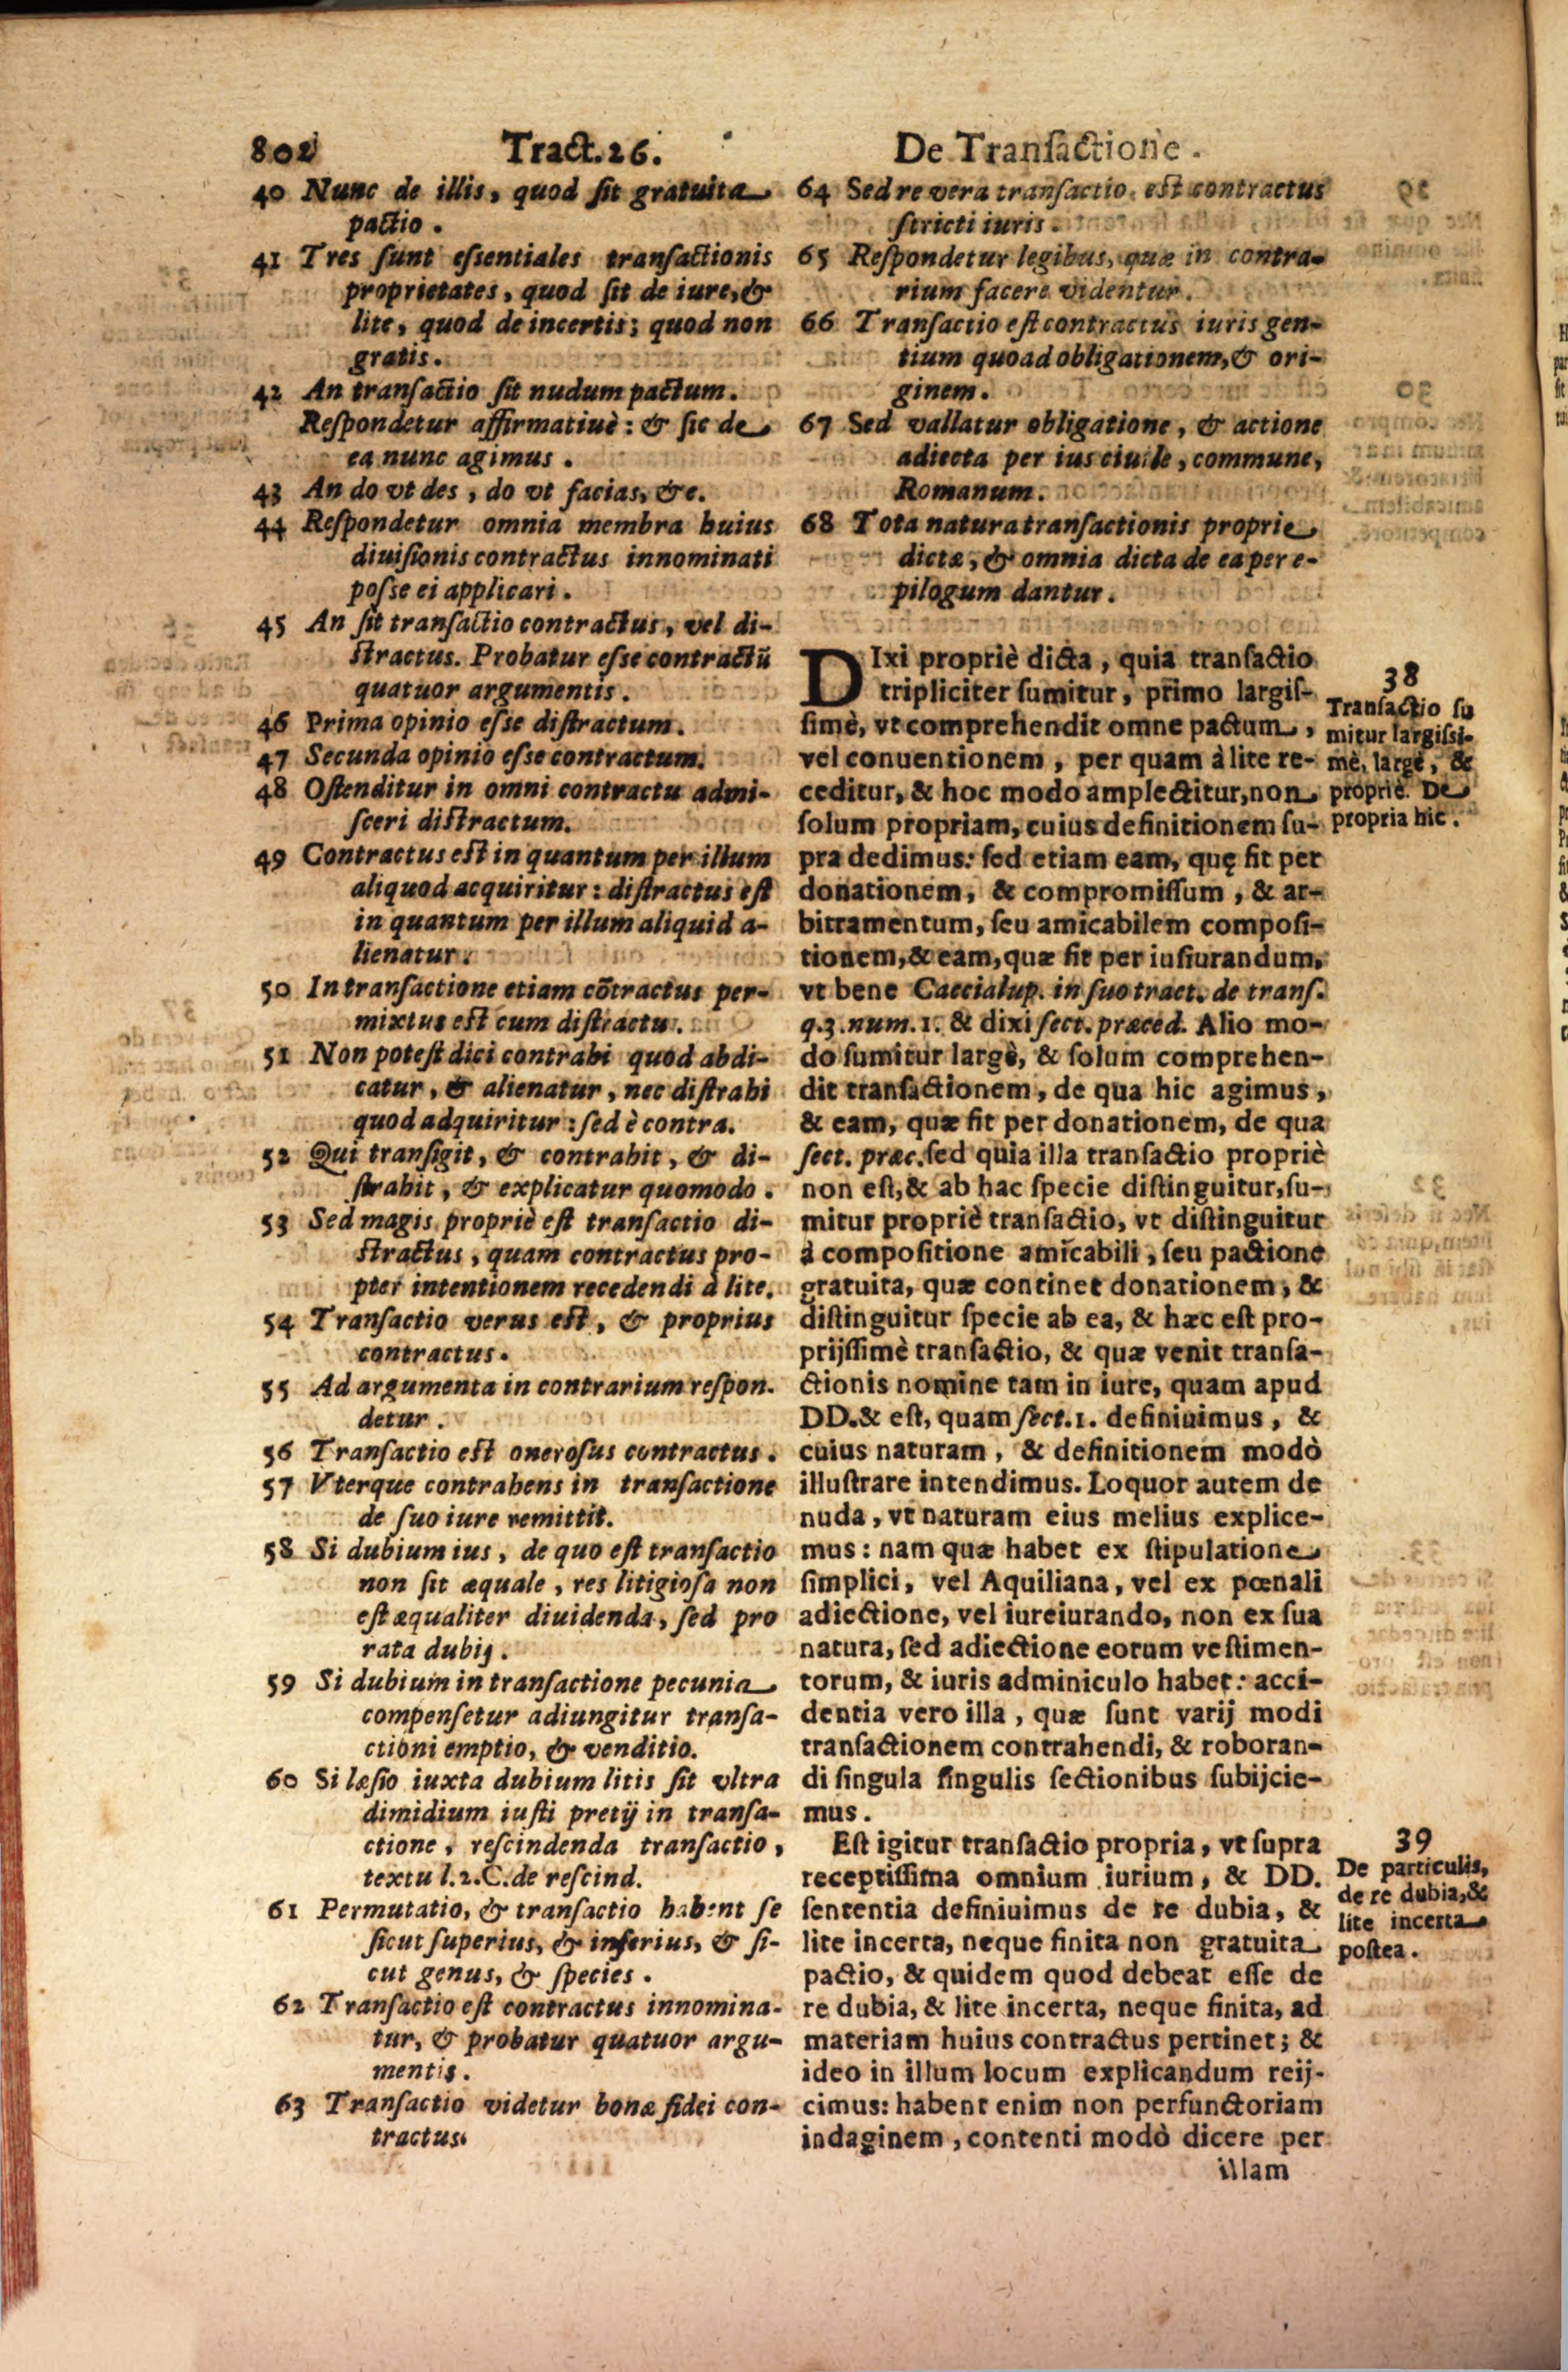 802 Tract. 26. De Transactione.
40 Nunc de illis, quod ſit gratuita
pactio.
41 Tres ſunt eſsentiales tranſactionis
proprietates, quod ſit de iure, &
lite, quod de incertis; quod non
gratis.
42 An tranſactio ſit nudum pactum.
Reſpondetur affirmatiuè: & ſic de
ea nunc agimus.
43 An do vt des, do vt facias, &c.
44 Reſpondetur omnia membra huius
diuiſionis contractus innominati
poſse ei applicari.
45 An ſit tranſactio contractus, vel di-
ſtractus. Probatur eſse contractũ
quatuor argumentis.
46 Prima opinio eſse diſtractum.
47 Secunda opinio eſse contractum.
48 Oſtenditur in omni contractu admi-
ſceri diſtractum.
49 Contractus eſt in quantum per illum
aliquod acquiritur: diſtractus eſt
in quantum per illum aliquid a-
lienatur.
50 In tranſactione etiam cõtractus per-
mixtus eſt cum diſtractu.
51 Non poteſt dici contrahi quod abdi-
catur, & alienatur, nec diſtrahi
quod adquiritur: ſed è contra.
52 Qui tranſigit, & contrahit, & di-
ſtrahit, & explicatur quomodo.
53 Sed magis propriè eſt tranſactio di-
ſtractus, quam contractus pro-
pter intentionem recedendi à lite.
54 Tranſactio verus eſt, & proprius
contractus.
55 Ad argumenta in contrarium reſpon.
detur.
56 Tranſactio eſt oneroſus contractus.
57 Vterque contrahens in tranſactione
de ſuo iure remittit.
58 Si dubium ius, de quo eſt tranſactio
non ſit æquale, res litigioſa non
eſt æqualiter diuidenda, ſed pro
rata dubij.
59 Si dubium in tranſactione pecunia
compenſetur adiungitur tranſa-
ctioni emptio, & venditio.
60 Si læſio iuxta dubium litis ſit vltra
dimidium iuſti pretij in tranſa-
ctione, reſcindenda tranſactio,
textu l.2.C.de reſcind.
61 Permutatio, & tranſactio habent ſe
ſicut ſuperius, & inferius, & ſi-
cut genus, & ſpecies.
62 Tranſactio eſt contractus innomina-
tur, & probatur quatuor argu-
mentis.
63 Tranſactio videtur bonæ fidei con-
tractus.
64 Sed re vera tranſactio eſt contractus
ſtricti iuris.
65 Reſpondetur legibus, quæ in contra-
rium facere videntur.
66 Tranſactio eſt contractus iuris gen-
tium quoad obligationem, & ori-
ginem.
67 Sed vallatur obligatione, & actione
adiecta per ius ciuile, commune,
Romanum.
68 Tota natura tranſactionis proprie
dictæ, & omnia dicta de ea per e-
pilogum dantur.
DIxi propriè dicta, quia tranſactio
tripliciter ſumitur, primo largiſ-
ſimè, vt comprehendit omne pactum,
vel conuentionem, per quam à lite re-
ceditur, & hoc modo amplectitur, non
ſolum propriam, cuius definitionem ſu-
pra dedimus: ſed etiam eam, quę fit per
donationem, & compromiſſum, & ar-
bitramentum, ſeu amicabilem compoſi-
tionem, & eam, quæ fit per iuſiurandum,
vt bene Caccialup. in ſuo tract. de tranſ.
q.3.num.1. & dixi ſect. præced. Alio mo-
do ſumitur largè, & ſolum comprehen-
dit tranſactionem, de qua hic agimus,
& eam, quæ fit per donationem, de qua
ſect. præc. ſed quia illa tranſactio propriè
non eſt, & ab hac ſpecie diſtinguitur, ſu-
mitur propriè tranſactio, vt diſtinguitur
à compoſitione amicabili, ſeu pactione
gratuita, quæ continet donationem, &
diſtinguitur ſpecie ab ea, & hæc eſt pro-
prijſſimè tranſactio, & quæ venit tranſa-
ctionis nomine tam in iure, quam apud
DD. & eſt, quam ſect.1. definiuimus, &
cuius naturam, & definitionem modò
illuſtrare intendimus. Loquor autem de
nuda, vt naturam eius melius explice-
mus: nam quæ habet ex ſtipulatione
ſimplici, vel Aquiliana, vel ex pœnali
adiectione, vel iureiurando, non ex ſua
natura, ſed adiectione eorum veſtimen-
torum, & iuris adminiculo habet: acci-
dentia vero illa, quæ ſunt varij modi
tranſactionem contrahendi, & roboran-
di ſingula ſingulis ſectionibus ſubijcie-
mus.
Eſt igitur tranſactio propria, vt ſupra
receptiſſima omnium iurium, & DD.
ſententia definiuimus de re dubia, &
lite incerta, neque finita non gratuita
pactio, & quidem quod debeat eſſe de
re dubia, & lite incerta, neque finita, ad
materiam huius contractus pertinet; &
ideo in illum locum explicandum reij-
cimus: habent enim non perfunctoriam
indaginem, contenti modò dicere per
illam
38
Tranſactio ſu
mitur largiſsi-
mè, largè, &
propriè. De
propria hic.
39
De particulis,
de re dubia, &
lite incerta
poſtea.